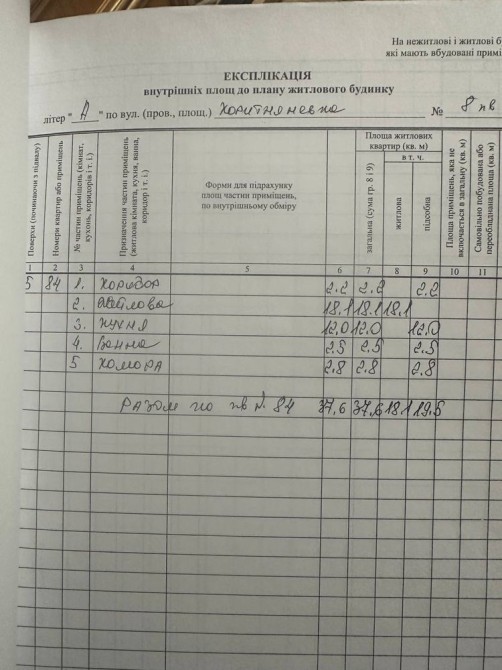 На нежитлові і житлові бу
які мають вбудовані примі
ЕКСПЛІКАЦІЯ
внутрішніх площ до плану житлового будинку
літер " А " по вул. (пров., площ.) № 8 кв
Поверхи (починаючи з підвалу)
Номери квартир або приміщень
№ частин приміщень (кімнат, кухонь, коридорів і т. і.)
Призначення частин приміщень (житлова кімната, кухня, ванна, коридор і т. і.)
Форми для підрахунку
площ частин приміщень,
по внутрішньому обміру
Площа житлових
квартир (кв. м)
загальна (сума гр. 8 і 9)
в т. ч.
житлова
підсобна
Площа приміщень, яка не включається в загальну (кв. м)
Самовільно побудована або переобладнана площа (кв. м)
1 2 3 4 5 6 7 8 9 10 11
5 84 1. коридор 2.2 2.2 2.2
2. житлова 18.1 18.1 18.1
3. кухня 12.0 12.0 12.0
4. Ванна 2.5 2.5 2.5
5 комора 2.8 2.8 2.8
Разом по кв № 84 37.6 37.6 18.1 19.5